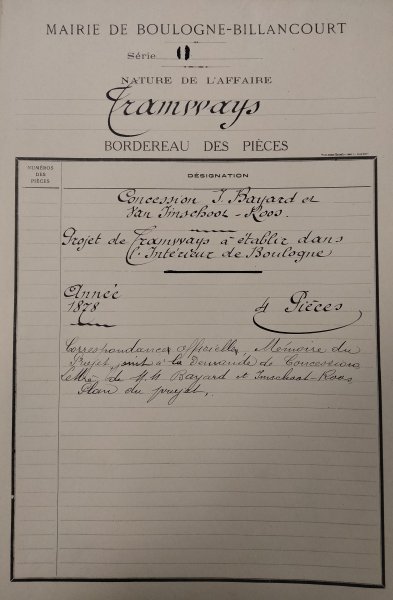 MAIRIE DE BOULOGNE-BILLANCOURT
Série O
NATURE DE L'AFFAIRE
Tramways
BORDEREAU DES PIÈCES
NUMÉROS
DES
PIÈCES
DÉSIGNATION
Concession J. Bayard et
Van Imschoot-Roos.
Projet de Tramways à établir dans
l'Intérieur de Boulogne
Année
1878
4 Pièces
Correspondance officielle, Mémoire du
Projet, joint à la Demande de Concession
de M.M. Bayard et Imschoot-Roos
Plan du projet.